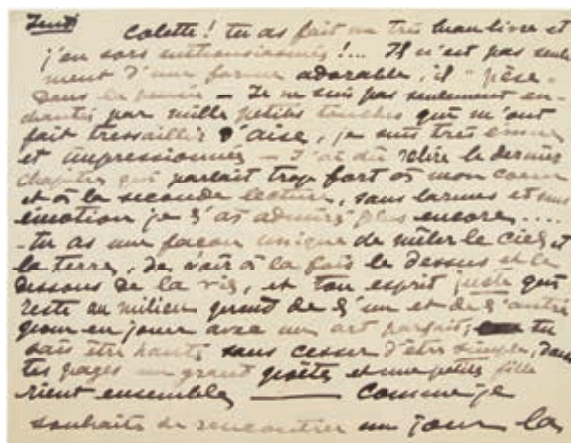 Jeudi
Colette! tu as fait un très beau livre et
j'en sors enthousiasmée!... Il n'est pas seule
ment d'une forme adorable, il "pèse"
dans la pensée — Je ne suis pas seulement en-
chantée par mille petites touches qui m'ont
fait tressaillir d'aise, je suis très émue
et impressionnée — J'ai dû relire le dernier
chapitre qui parlait trop fort à mon coeur
et à la seconde lecture, sans larmes et sans
émotion je l'ai admiré plus encore....
- tu as une façon unique de mêler le ciel et
la terre, de voir à la fois le dessus et le
dessous de la vie, et ton esprit juste qui
reste au milieu prend de l'un et de l'autre
pour en jouer avec un art parfait; tu
sais être haute sans cesser d'être simple, dans
tes pages un grand poète et une petite fille
rient ensemble —— comme je
souhaite de rencontrer un jour la